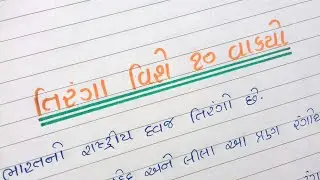 તિરંગા વિશે ૧૦ વાક્યો
ભારતનો રાષ્ટ્રીય ધ્વજ તિરંગો છે.
અને લીલા આ ત્રણ રંગોથી